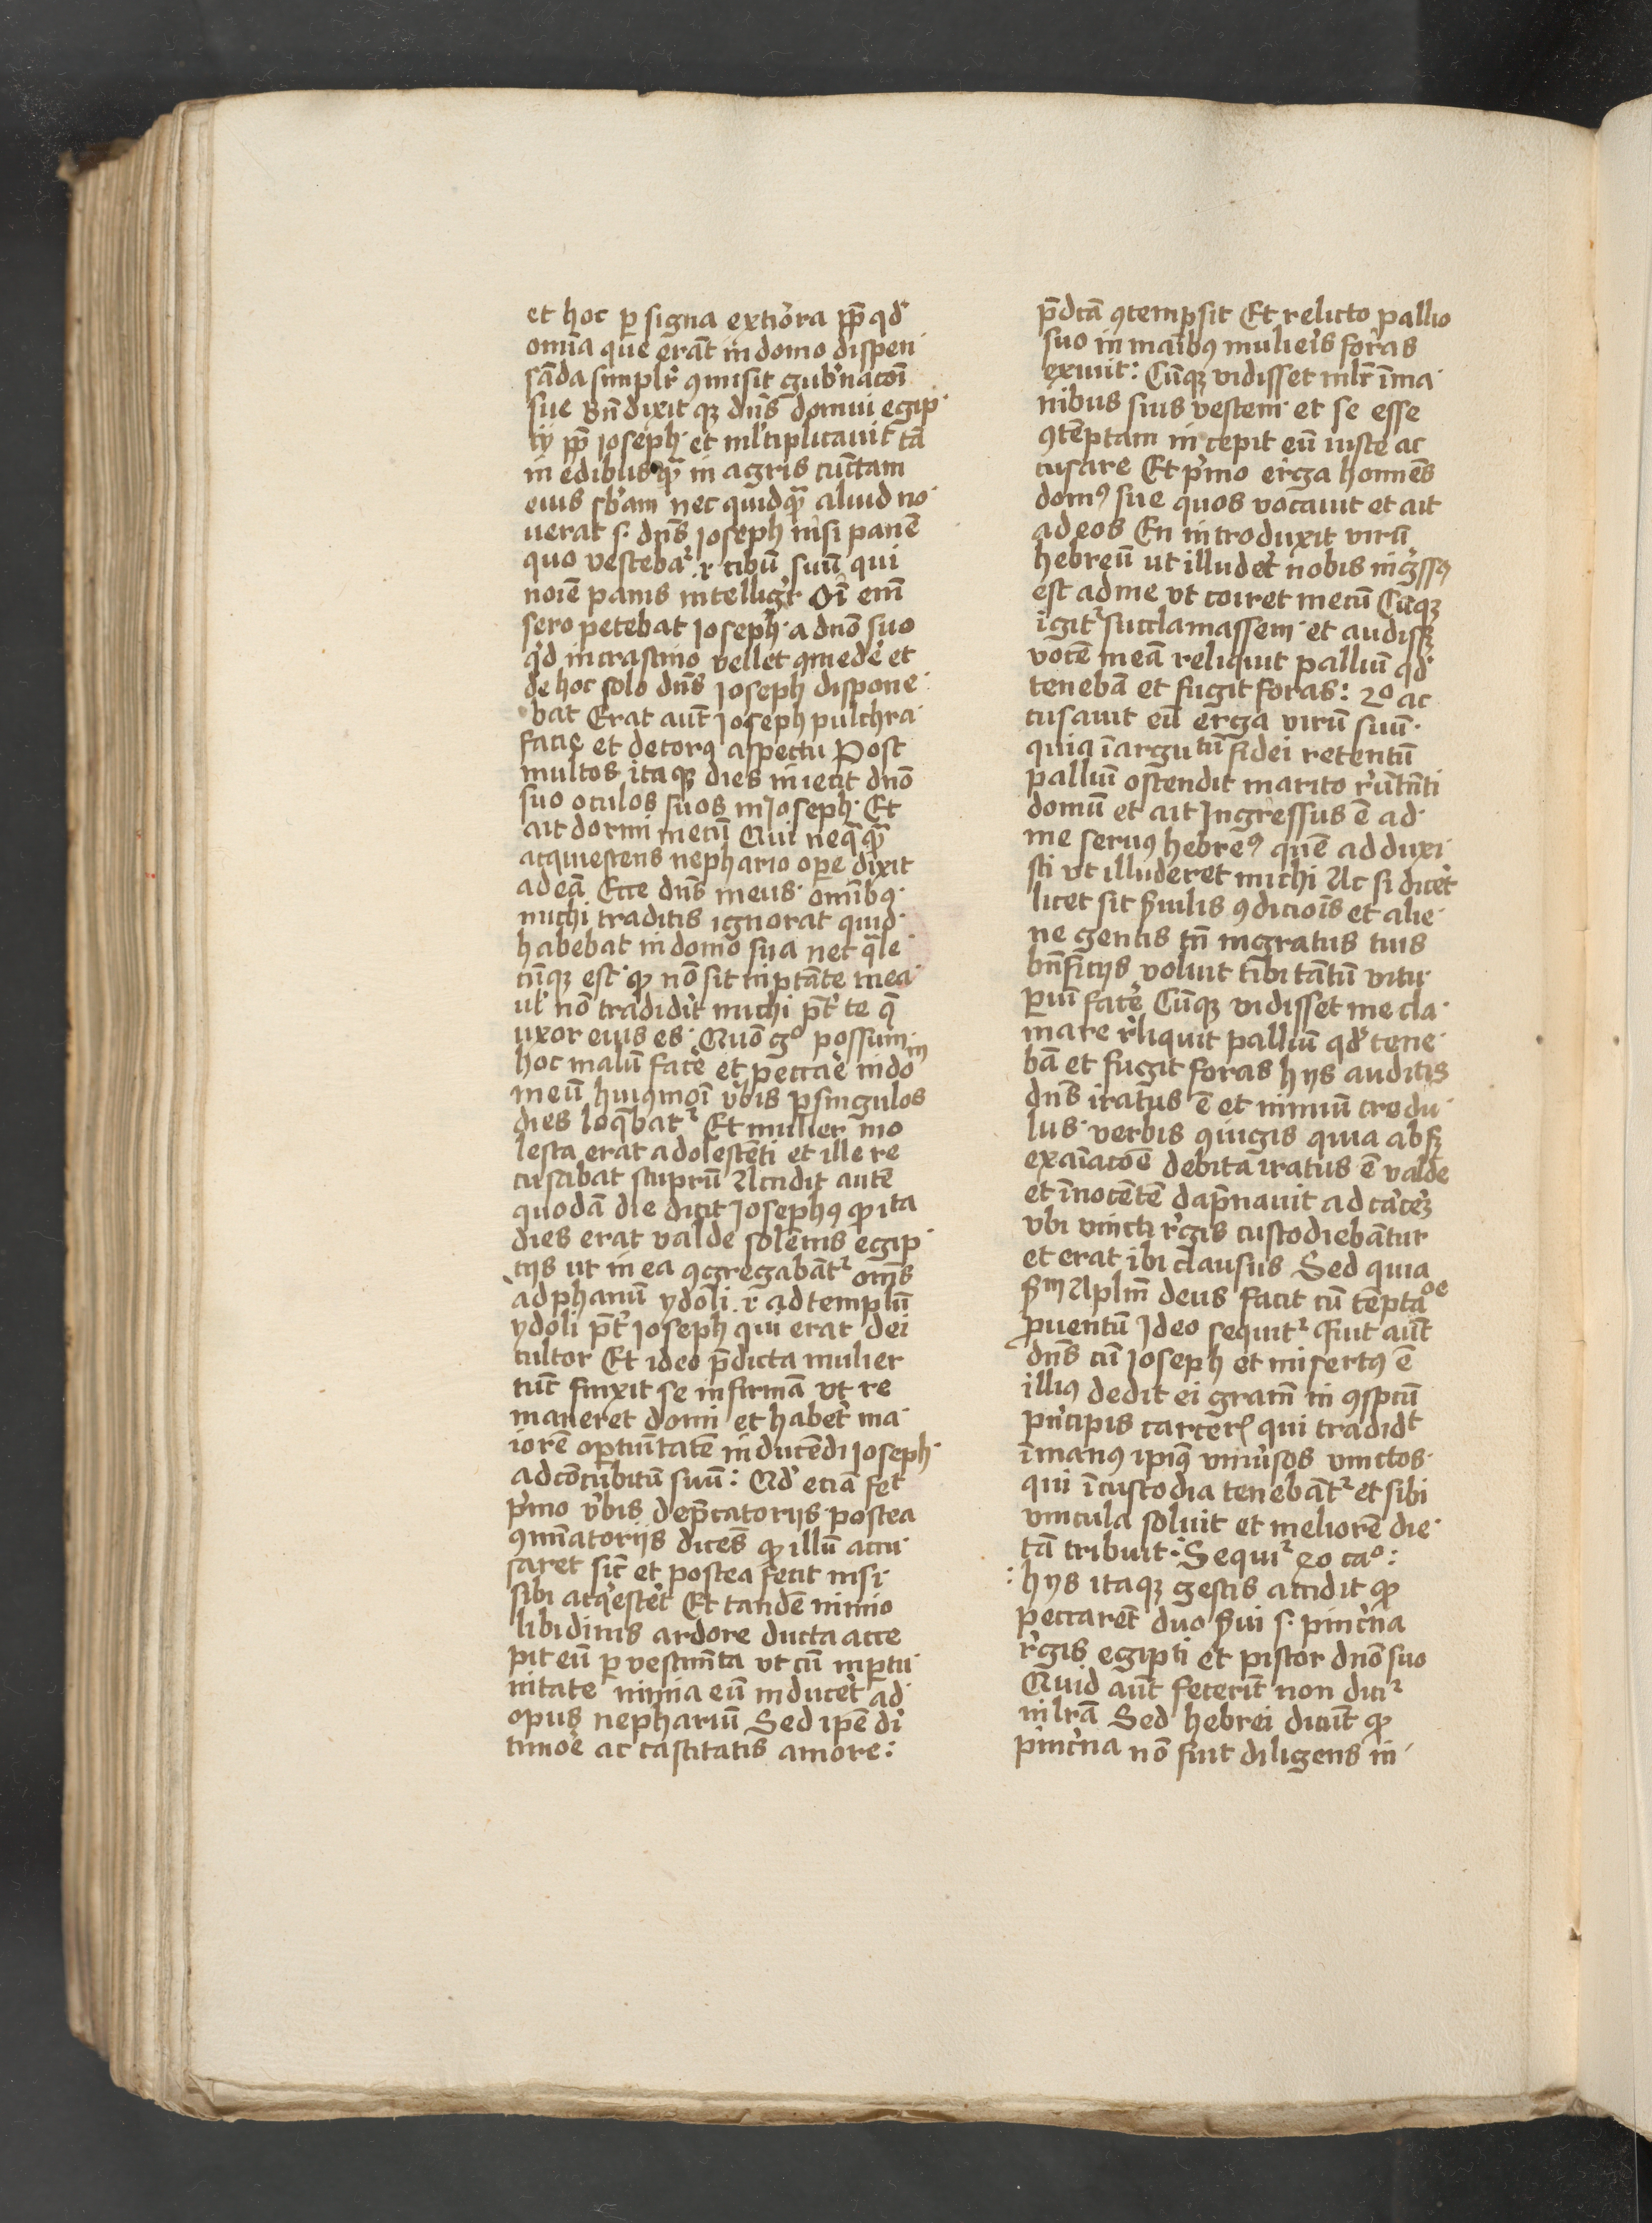 et hoc ꝑ signa exti᷑ora ꝓpͭ qd᷑
om̄ia que erāt in domo dispen
sāda simplr᷑ ꝯmisit gub᷑nacōi
sue Bn̄dixit qꝫ dn̄s domui egip
tij ꝓpͭ ioseph · et ml᷑tiplicauit tā
in edibus qᷓ in agris cunctam
eius sb᷑am nec quidqᷓ aliud no
uerat s· dn̄s ioseph nisi panē
quo vesceba᷑ ·i· cibū suū qui
noīe panis intelligr᷑ Oī em̄
sero petebat ioseph · a dn̄o suo
qͥd in crastino vellet ꝯmede᷑ et
de hoc solo dn̄s ioseph dispone
bat Erat aut̄ ioseph pulchra
facie et decorꝰ aspectu Post
multos itaqꝫ dies iniecit dn̄o
suo oculos suos in ioseph · Et
ait dormi mecū Qui neqͣqᷓ
acquiescens nephario oꝑe dixit
ad eā Ecce dn̄s meus · omībꝰ
michi traditis ignorat quid
habebat in domo sua nec qͣle
cūqꝫ est · ꝙ nō sit in ptāte mea
ul᷑ nō tradidit᷑ michi p̄t᷑ te q̄
uxor eius es · Quō gͦ possum
hoc malū face᷑ et pecca᷑e in do
meū huiꝰmōi v᷑bis ꝑ singulos
dies loqͣbat᷑ Et mulier mo
lesta erat adolescēti et ille re
cusabat stuprū Accidit autē
quodā die dicit Josephꝰ ꝙ ita
dies erat valde solēnis egip
tijs ut in ea ꝯgregabāt᷑ om̄s
ad phanū ydoli ·i· ad templū
ydoli p̄t᷑ ioseph qui erat dei
cultor Et ideo p̄dicta mulier
tūc finxit se infirmā vt re
maneret domi et habet᷑ ma
iorē oꝑtunitatē inducēdi ioseph
ad cōcubitū suū : Qd᷑ eciā fec᷑
pͥmo v᷑bis dep̄catorijs postea
ꝯminatorijs dicēs ꝙ illū accu
saret sic̄ et postea fecit nisi
sibi acqͥescet᷑ Et tandē nimio
libidinis ardore ducta acce
pit eū ꝑ vestimēta vt cū inꝑtu
nitate nimia eū inducet᷑ ad
opus nephariū Sed ipse di
timo᷑e ac castitatis amore :
p̄dcā ꝯtempsit Et relicto pallio
suo in manibꝰ mulie᷑is foras
exiuit : Cūqꝫ vidisset mlr̄ ī ma
nibus suis vestem · et se esse
ꝯtēptam incepit eū iuste ac
cusare Et pͥmo erga homīes
domꝰ sue quos vocauit et ait
ad eos En introduxit virū
hebreū ut illudet᷑ nobis ing᷑ssꝰ
est ad me vt coiret mecū Cūqꝫ
igit᷑ succlamassem · et audissꝫ
vocē meā reliquit palliū qd᷑
tenebā et fugit foras : 2º ac
cusauit eū erga virū suū ·
quia ī argutū fidei retentū
palliū ostendit marito r᷑ūtnti
domū et ait Jngressus ē ad
me seruꝰ hebreꝰ quē adduxi
sti vt illuderet michi Ac si dicet᷑
licet sit s᷑uilis ꝯdiciōis et alie
ne gentis tn̄ ingratus tuis
bn̄ficijs voluit tibi tātū vitu
ꝑiū face᷑ Cūqꝫ vidisset me cla
mare r᷑liquit palliū qd᷑ tene
bā et fugit foras hijs auditis
dn̄s iratus ē et nimiū credu
lus · verbis ꝯiugis quia absqꝫ
exaīacōe debita iratus ē valde
et īnocētē dap̄nauit ad ca᷑ceꝫ
vbi vincti r᷑gis custodiebātur
et erat ibi clausus Sed quia
s᷑m Aplm̄ deus facit cū tēptaoe
ꝓuentū Jdeo sequit᷑ Fuit aut̄
dn̄s cū ioseph et misertꝰ ē
illiꝰ dedit ei gram̄ in ꝯspcū
pͥncipis carceris qui tradidt
ī manꝰ ipīꝰ vniu᷑sos vinctos
qui ī custodia tenebāt᷑ et sibi
vincula soluit et meliorē die
tā tribuit · Sequi᷑ 20 caº :
: hijs itaqꝫ gestis accidit ꝙ
peccarēt duo s᷑ui s· pinc᷑na
r᷑gis egipti et pistor dn̄o suo
Quid aut̄ fecerīt non dici᷑
in lrā Sed hebrei dicūt ꝙ
pinc᷑na nō fuit diligens in